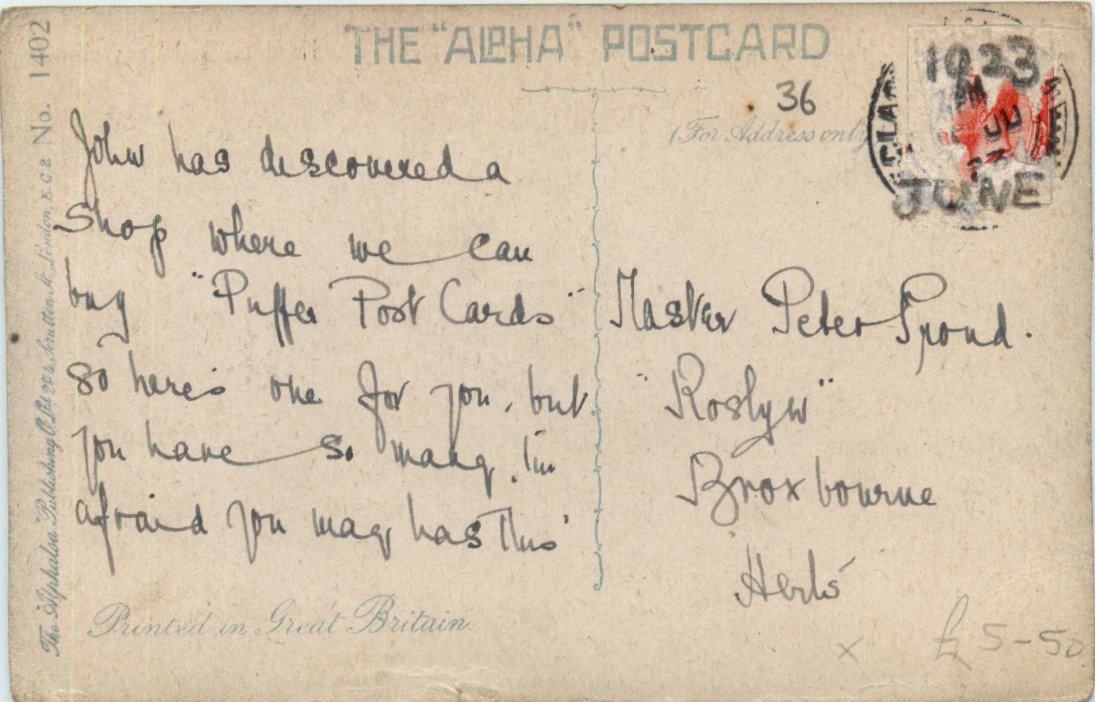 THE "ALPHA" POSTCARD
36
(For Address only
1923
JUNE
John has discovered a
Shop where we can
buy "Puffer Post Cards"
so here's one for you, but
you have so many, I'm
afraid you may has this
Master Peter Spond.
"Roslyn"
Broxbourne
Herts
Printed in Great Britain.
The Alphalsa Publishing Co. Ltd London, E.C.2 No. 1402
x £5-50